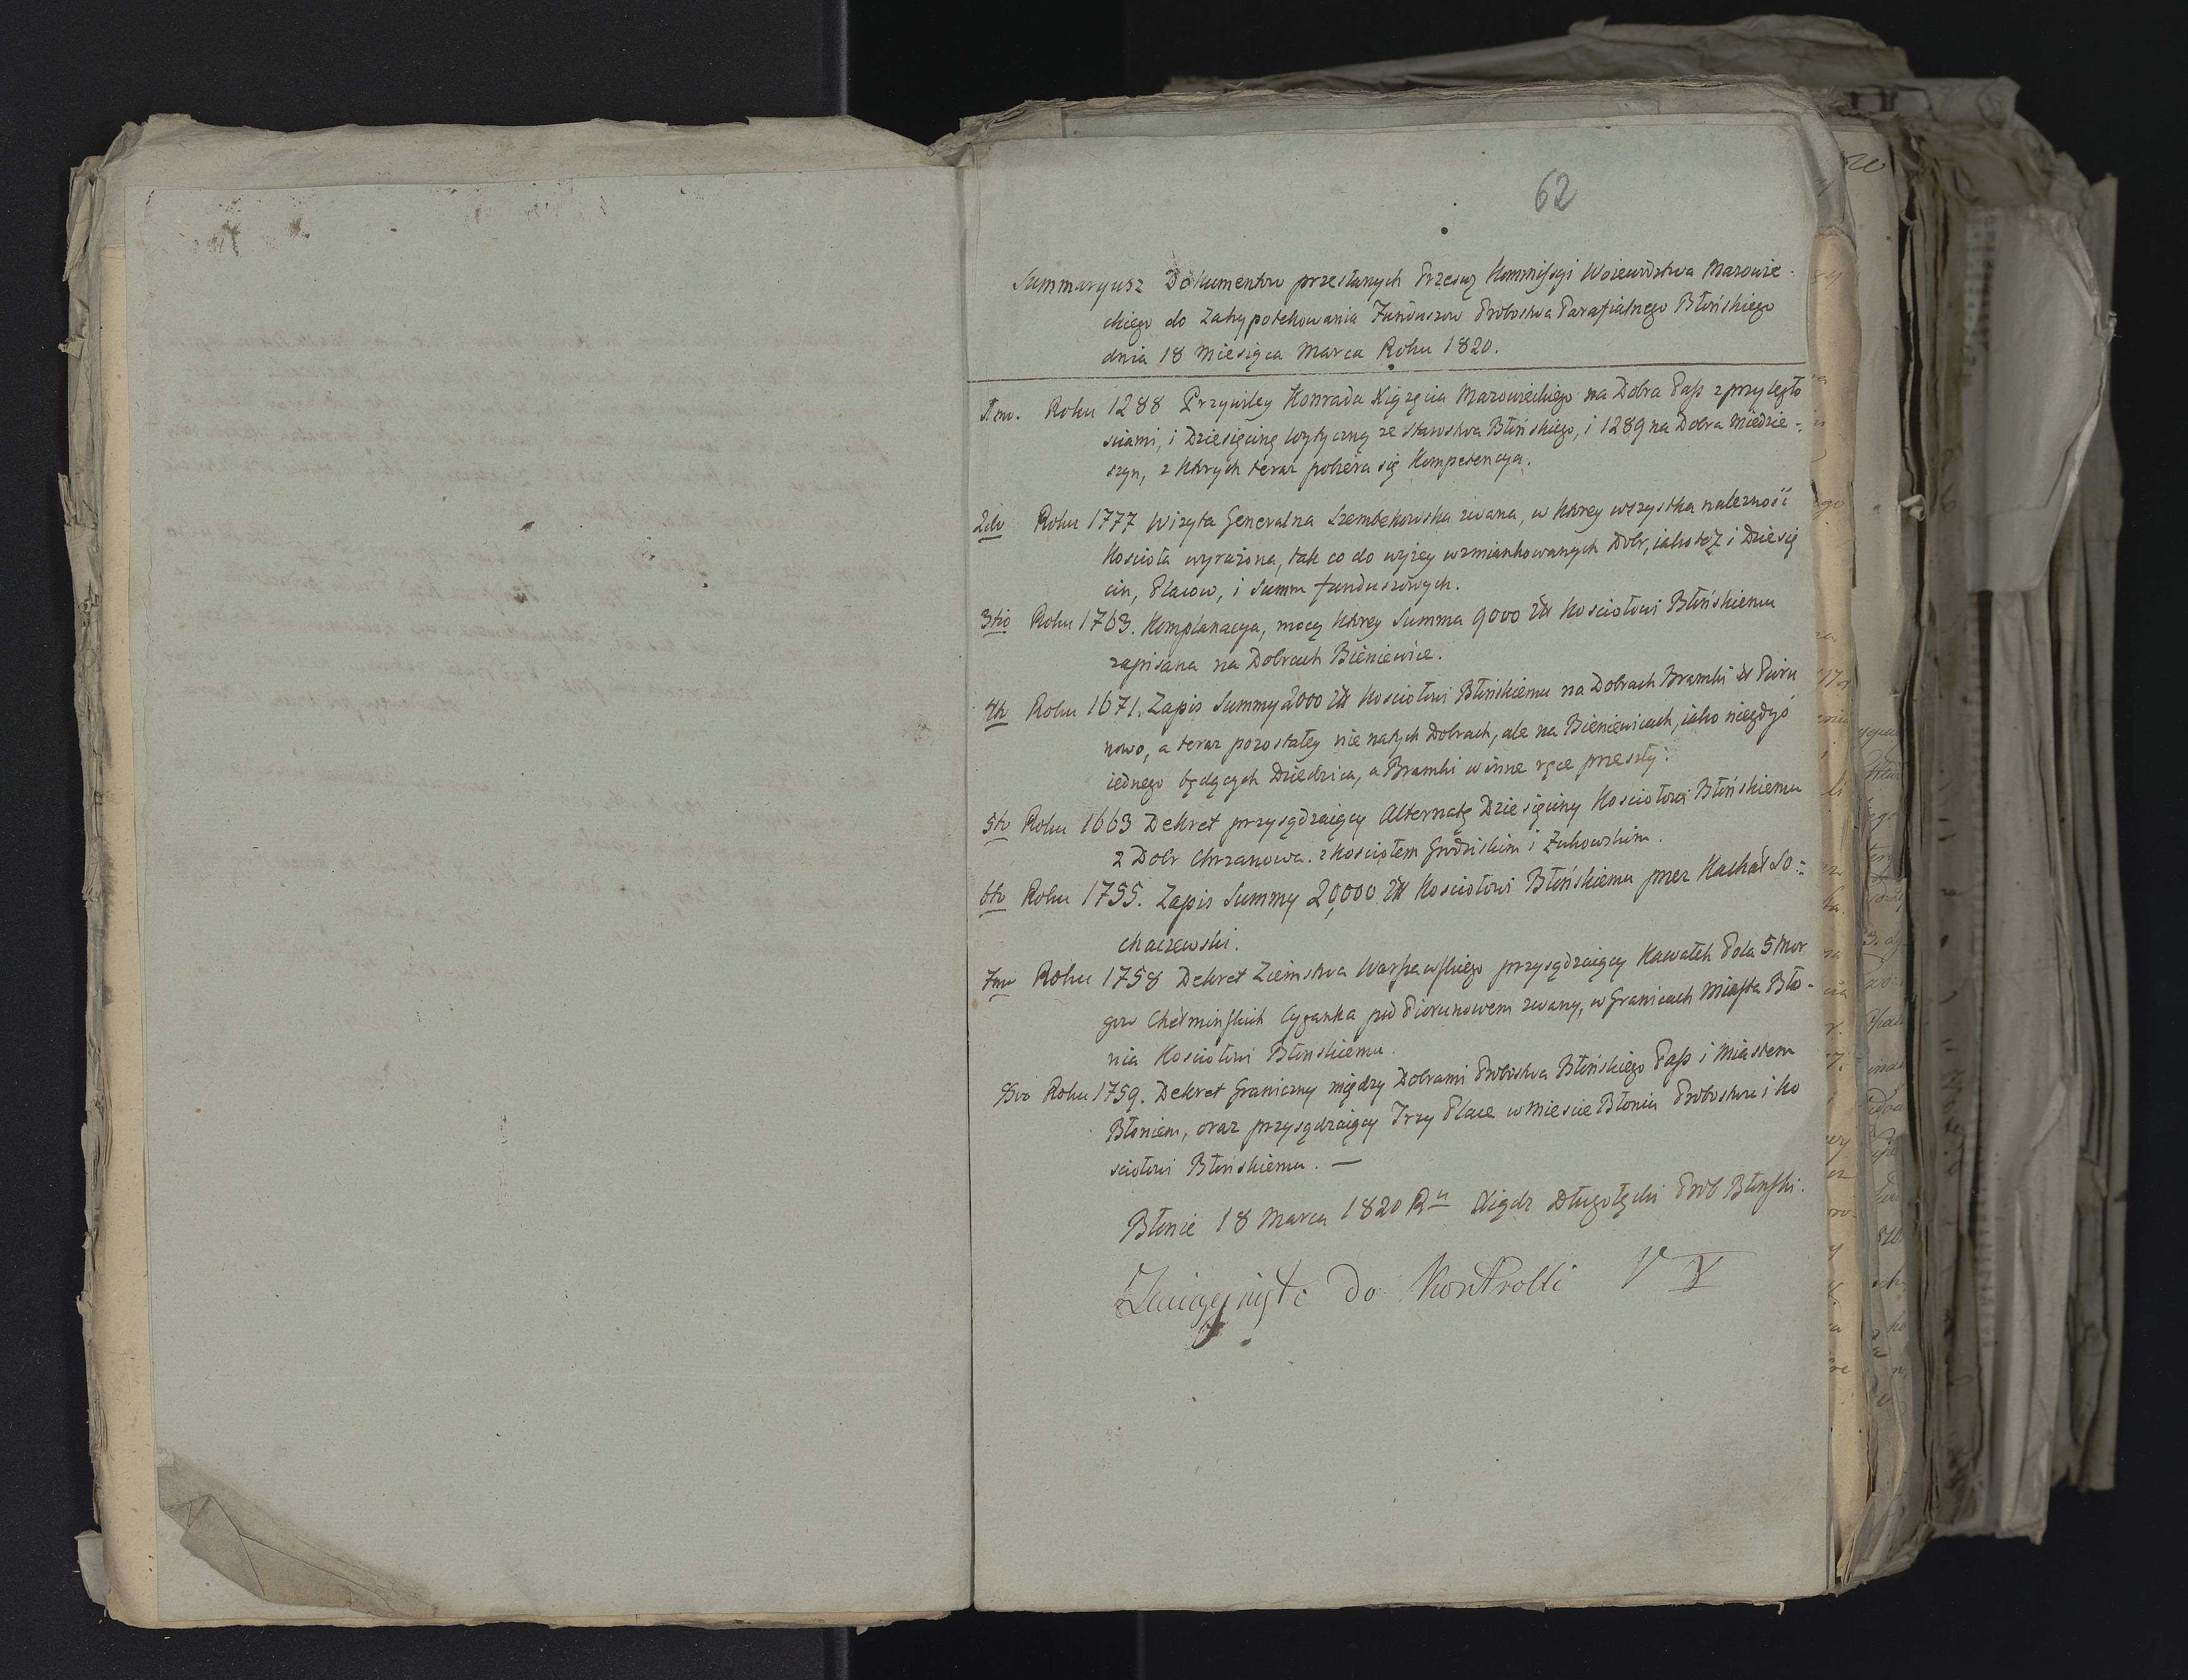 62
Summaryusz Dokumentow przesłanych Przesw Kommissyi Woiewodztwa Mazowie-
ckiego do Zahypotekowania Funduszow Probostwa Parafialnego Błońskiego
dnia 18 Miesiąca Marca Roku 1820.
1mo. Roku 1288 Przywiley Konrada Xiążęcia Mazowieckiego na Dobra Pass z przyległo
sciami, i Dziesięcinę wytyczną ze Starostwa Błońskiego, i 1289 na Dobra Miedzie-
szyn, z ktorych teraz pobiera się Kompetencya.
2do Roku 1777 Wizyta Generalna Szembekowska zwana, w ktorey wszystka nalezność
Kościoła wyrażona, tak co do wyżey wzmiankowanych Dobr, iakoteż i Dziesię
cin, Placow, i Summ funduszowych.
3tio Roku 1763. Komplanacya, mocą ktorey Summa 9000 Zł Kosciołowi Błońskiemu
zapisana na Dobrach Bieniewice.
4to Roku 1671. Zapis Summy 2000 Zł Kosciołowi Błońskiemu na Dobrach Bramki et Pioru
nowo, a teraz pozostałey nie na tych Dobrach, ale na Bieniewicach, iako niegdyś
iednego będących Dziedzica, a Bramki w inne ręce przeszły.
5to Roku 1663 Dekret przysądzaiący Alternatę Dziesięciny Kosciołowi Błońskiemu
z Dobr Chrzanowa. z Kosciołem Grodziskim i Żukowskim.
6to Roku 1755. Zapis Summy 20,000 Zł Kosciołowi Błońskiemu przez Kachał So-
chaczewski.
7mo Roku 1758 Dekret Ziemstwa Warszawskiego przysądzaiący Kawałek Pola 5 Mor
gow Chełminskich Cyganka pod Piorunowem zwany, w Granicach Miasta Bło-
nia Kosciołowi Błonskiemu.
8vo Roku 1759. Dekret Graniczny między Dobrami Probostwa Błońskiego Pass i Miastem
Błoniem, oraz przysądzaiący Trzy Place w Miescie Błoniu Probostwu i Ko
sciołowi Błońskiemu. —
Błonie 18 Marca 1820 Ru Xiądz Długołęcki Prob Błonski.
Zaciągnięte do Kontrolli